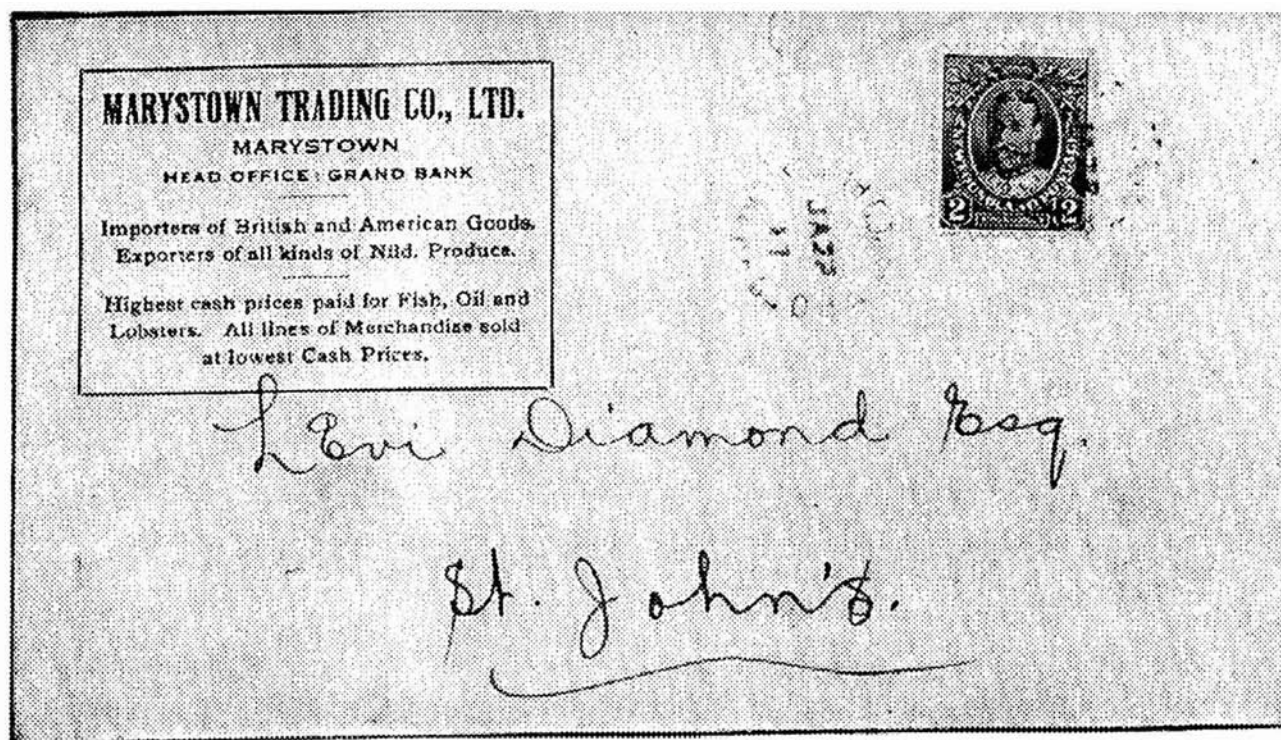 MARYSTOWN TRADING CO., LTD.
MARYSTOWN
HEAD OFFICE: GRAND BANK
Importers of British and American Goods.
Exporters of all kinds of Nfld. Produce.
Highest cash prices paid for Fish, Oil and
Lobsters. All lines of Merchandise sold
at lowest Cash Prices.
2 2
LEvi Diamond Esq.
St. John's.